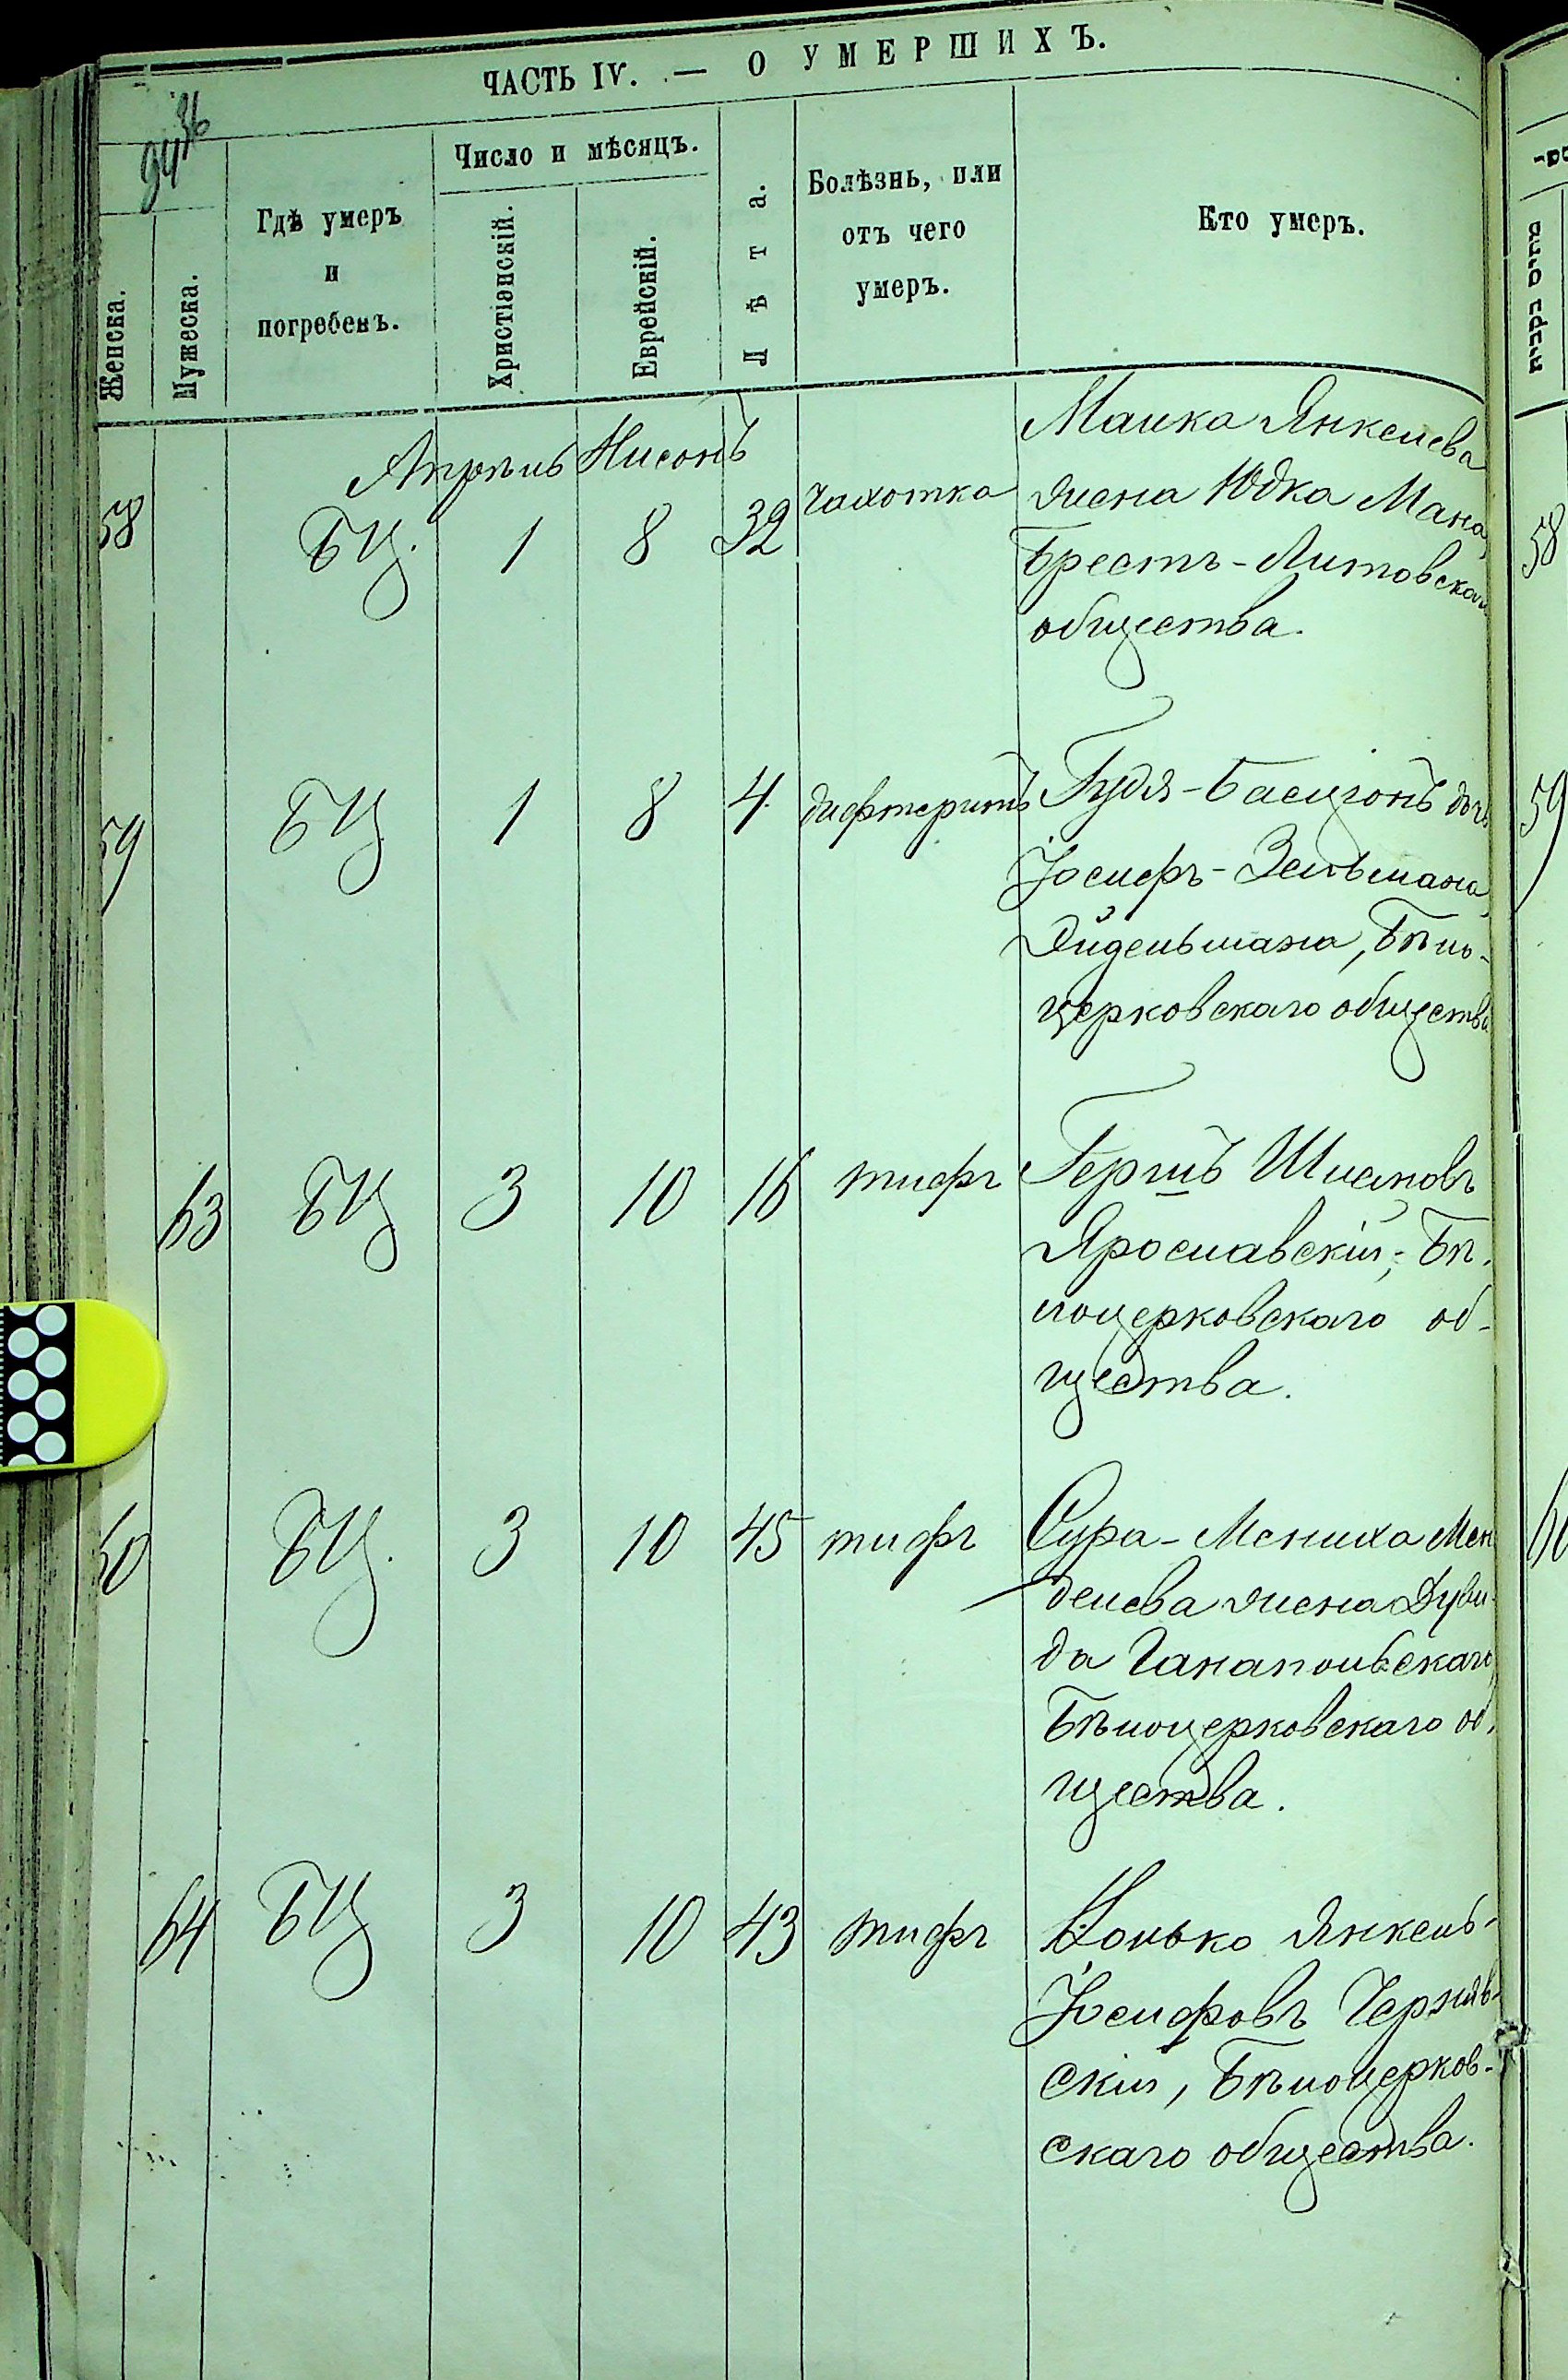 ЧАСТЬ IV. — О УМЕРШИХЪ.
94 36
Женска.
Мужеска.
Гдѣ умеръ
и
погребенъ.
Число и мѣсяцъ.
Христіанскій.
Еврейскій.
Лѣта.
Болѣзнь, или
отъ чего
умеръ.
Кто умеръ.
Апрѣль Нисонъ
58 БЦ. 1 8 32 Чахотка
Малка Янкелева
жена Юдка Мана,
Брестъ-Литовскаго
общества.
59 БЦ 1 8 4 дифтеритъ
Гудя-Басціонъ дочь
Іосифъ-Зельмана
Эйдельмана, Бѣло-
церковскаго общества
63 БЦ 3 10 16 тифъ
Гершъ Шисановъ
Ярославскій, Бѣ-
лоцерковскаго об-
щества.
60 БЦ. 3 10 45 тифъ
Сура-Мениха Мен
делева жена Дуви-
да Ганапольскаго,
Бѣлоцерковскаго об-
щества.
64 БЦ 3 10 43 тифъ
Іонько Янкель-
Іосифовъ Черняв-
скій, Бѣлоцерков-
скаго общества.
58
59
60